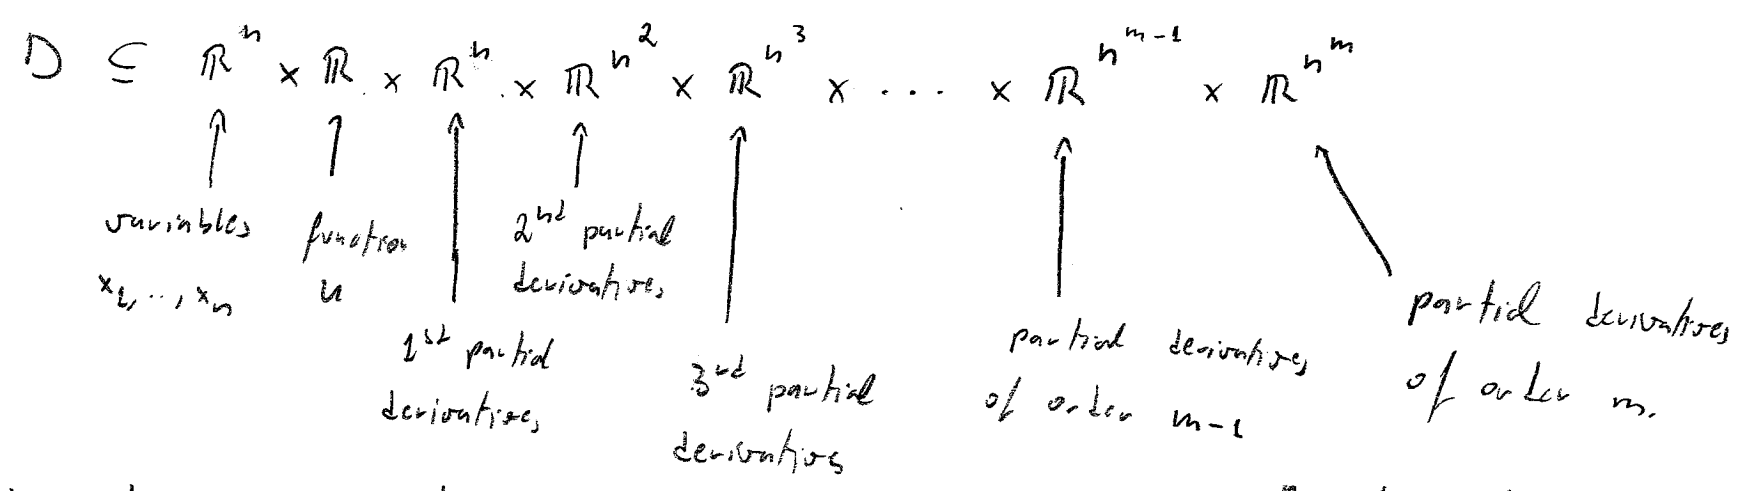 D ⊆ ℝⁿ × ℝ × ℝⁿ × ℝ^{n^2} × ℝ^{n^3} × ... × ℝ^{n^{m-1}} × ℝ^{n^m}
variables
x₁, .., xₙ
function
u
1st partial
derivatives
2nd partial
derivatives
3rd partial
derivatives
partial derivatives
of order m-1
partial derivatives
of order m.